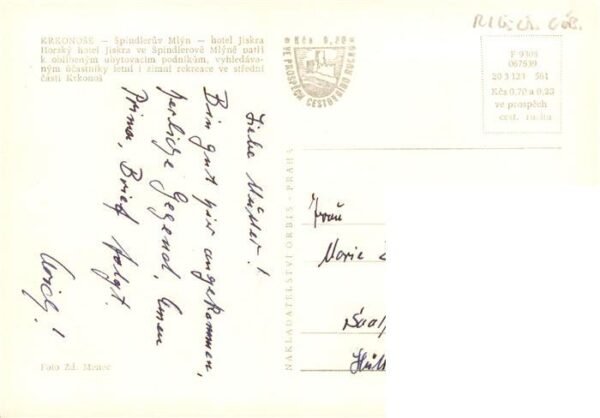 KRKONOŠE — Špindlerův Mlýn — hotel Jiskra
Horský hotel Jiskra ve Špindlerově Mlýně patří
k oblíbeným ubytovacím podnikům, vyhledáva-
ným účastníky letní i zimní rekreace ve střední
části Krkonoš
Kčs 0,20
VE PROSPĚCH CESTOVNÍHO RUCHU
F 9305
067939
20 3 123 561
Kčs 0,70 a 0,20
ve prospěch
cest. ruchu
Liebe Mutter!
Bin gut hier angekommen,
herliche Gegend,
Prima, Brief folgt.
NAKLADATELSTVÍ ORBIS - PRAHA
Frau
Marie
Saal
Foto Zd. Menec